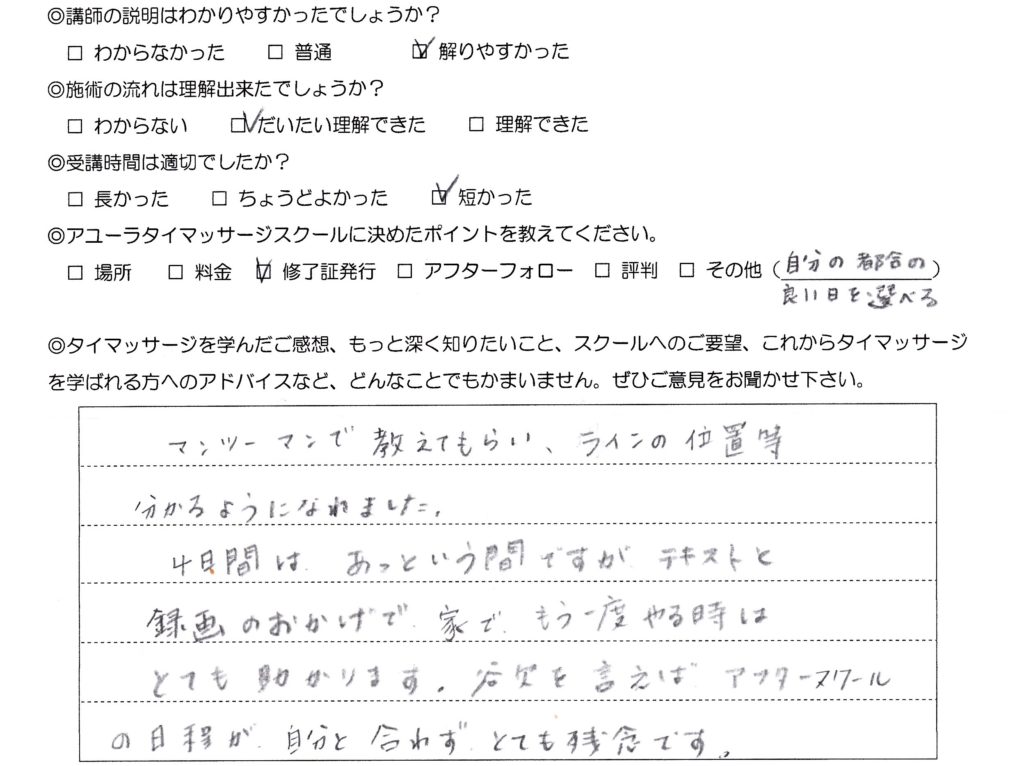 ◎講師の説明はわかりやすかったでしょうか？
□ わからなかった □ 普通 ☑ 解りやすかった
◎施術の流れは理解出来たでしょうか？
□ わからない ☑ だいたい理解できた □ 理解できた
◎受講時間は適切でしたか？
□ 長かった □ ちょうどよかった ☑ 短かった
◎アユーラタイマッサージスクールに決めたポイントを教えてください。
□ 場所 □ 料金 ☑ 修了証発行 □ アフターフォロー □ 評判 □ その他（自分の都合の）
良い日を選べる
◎タイマッサージを学んだご感想、もっと深く知りたいこと、スクールへのご要望、これからタイマッサージ
を学ばれる方へのアドバイスなど、どんなことでもかまいません。ぜひご意見をお聞かせ下さい。
マンツーマンで教えてもらい、ラインの位置等
分かるようになれました。
4日間は、あっという間ですが、テキストと
録画のおかげで、家で、もう一度やる時は
とても助かります。欲を言えば、アフタースクール
の日程が、自分と合わず、とても残念です。